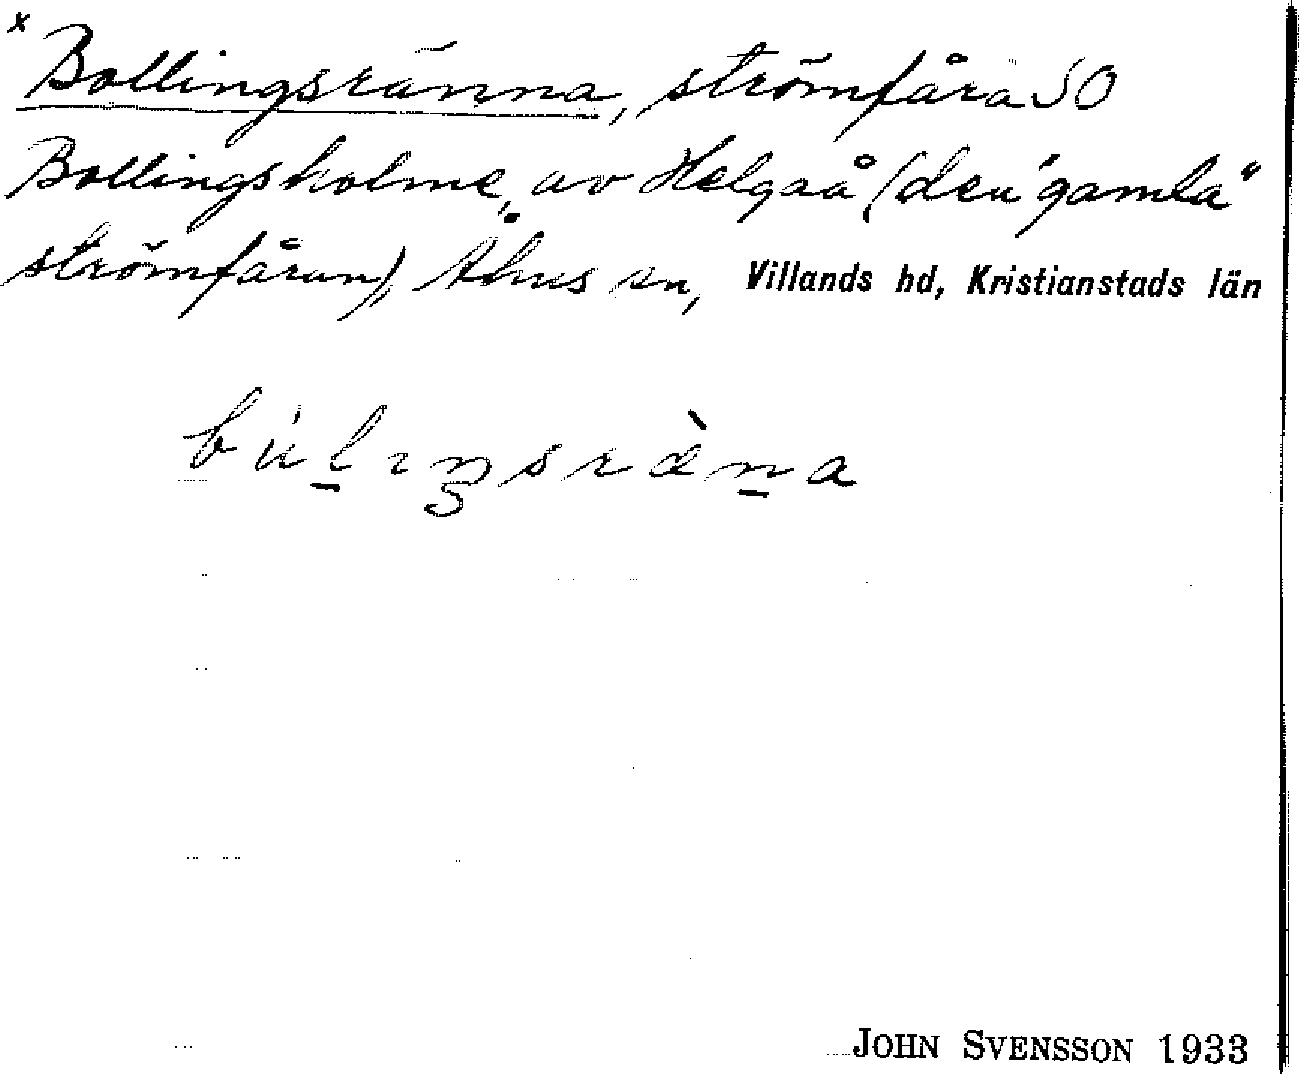 x Bollingsränna, strömfåra SO
Bollingsholme, av Helgaå (den "gamla"
strömfåran), Åhus sn, Villands hd, Kristianstads län
bùl̠ıŋsràn̠a
JOHN SVENSSON 1933